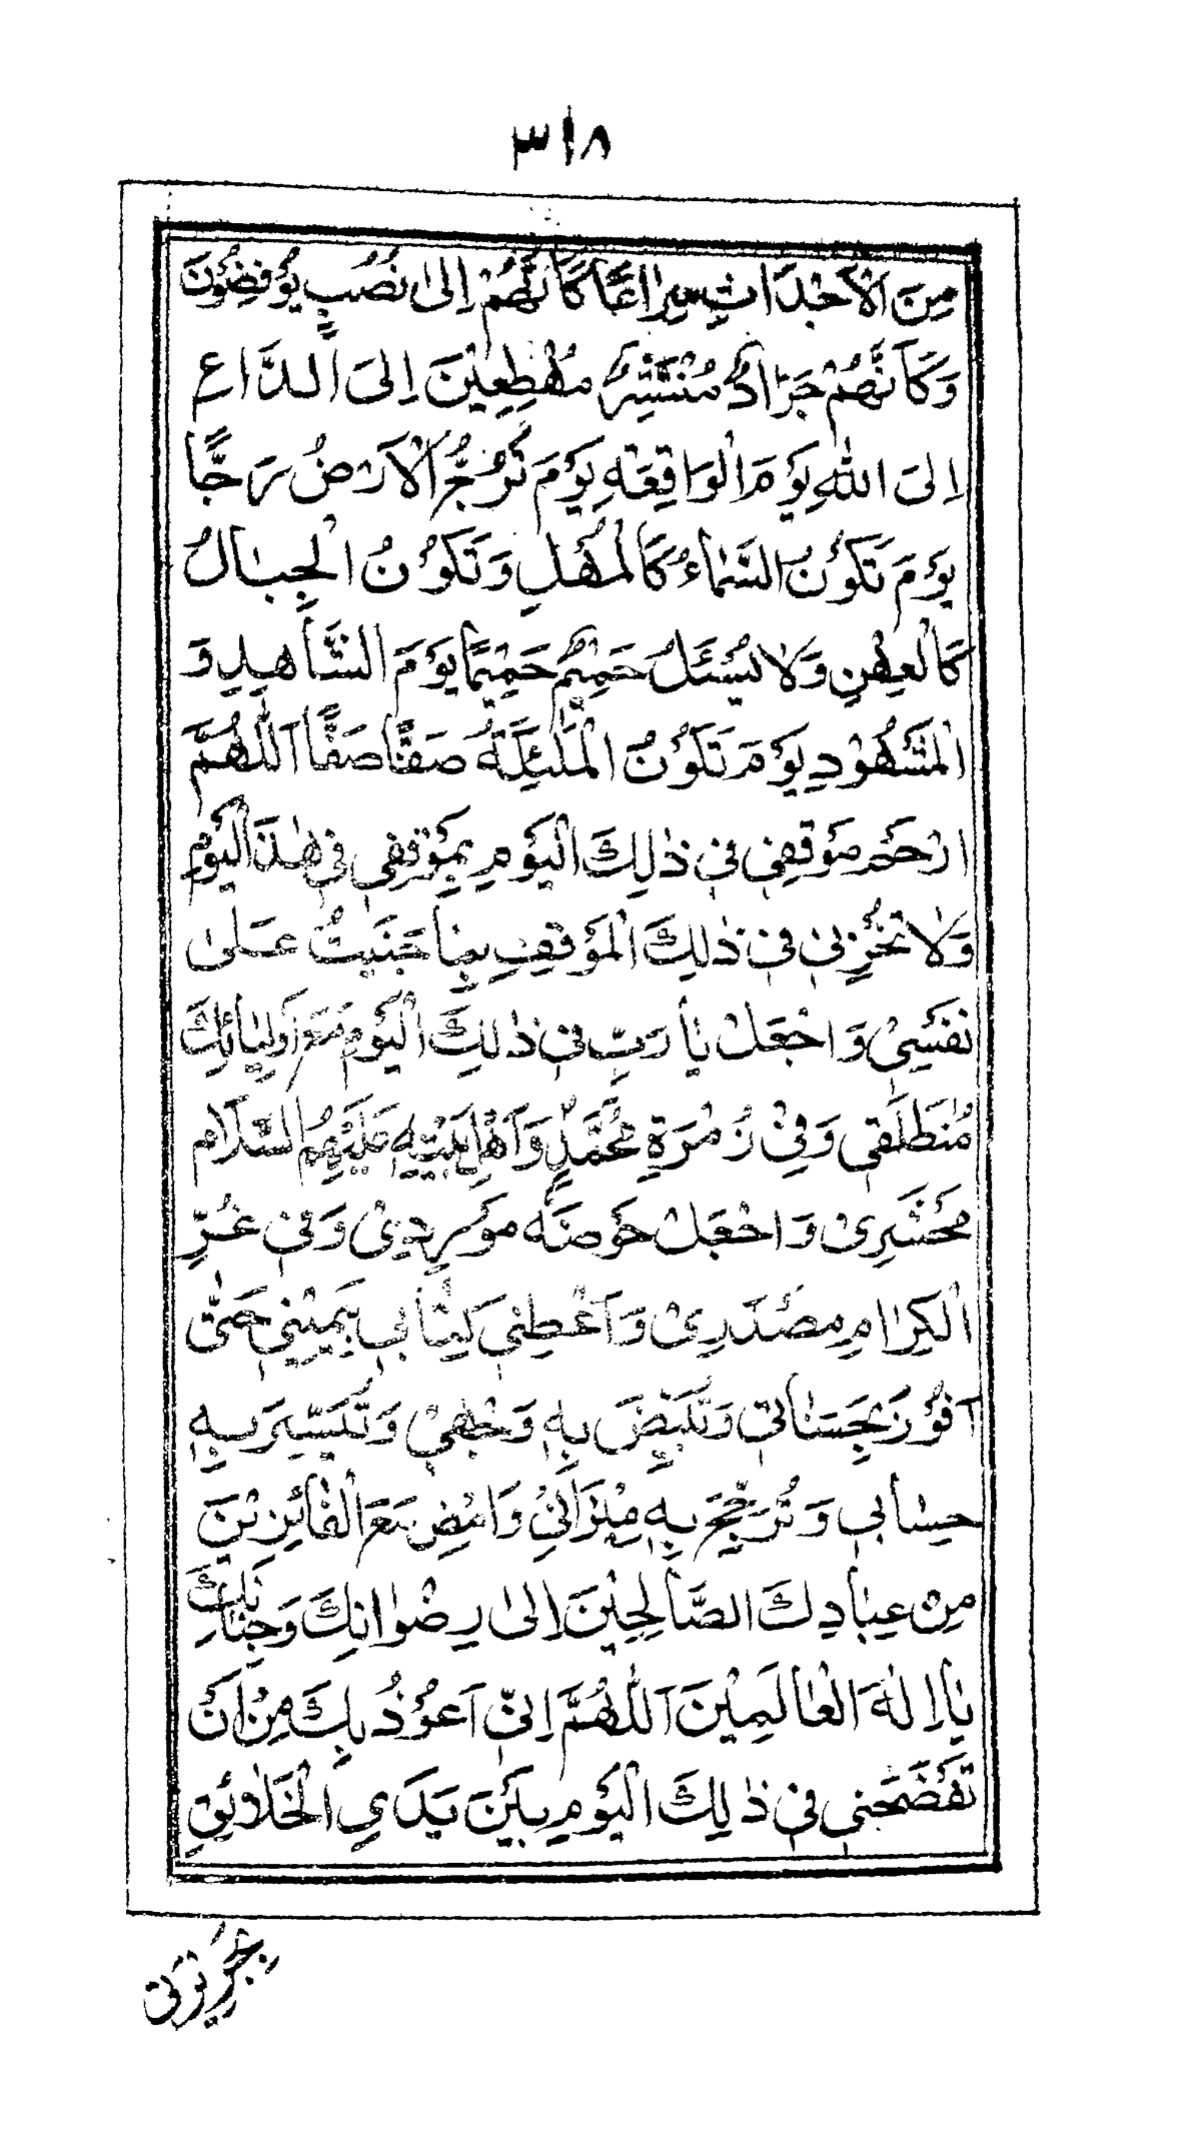 ٣١٨
مِنَ الْاَجْدَاثِ سِرَاعًا كَاَنَّهُمْ اِلىٰ نُصُبٍ يُوْفِضُوْنَ
وَكَاَنَّهُمْ جَرَادٌ مُنْتَشِرٌ مُهْطِعِيْنَ اِلىَ الدَّاعِ
اِلىَ اللهِ يَوْمَ الْوَاقِعَةِ يَوْمَ تُرَجُّ الْاَرْضُ رَجًّا
يَوْمَ تَكُوْنُ السَّمَاءُ كَالْمُهْلِ وَتَكُوْنُ الْجِبَالُ
كَالْعِهْنِ وَلَا يُسْئَلُ حَمِيْمٌ حَمِيْمًا يَوْمَ الشَّاهِدِ وَ
الْمَشْهُوْدِ يَوْمَ تَكُوْنُ الْمَلٰئِكَةُ صَفًّا صَفًّا اَللّٰهُمَّ
ارْحَمْ مَوْقِفِيْ فِيْ ذٰلِكَ الْيَوْمِ بِمَوْقِفِيْ فِيْ هٰذَا الْيَوْمِ
وَلَا تُخْزِنِيْ فِيْ ذٰلِكَ الْمَوْقِفِ بِمَا جَنَيْتُ عَلىٰ
نَفْسِيْ وَاجْعَلْ يَا رَبِّ فِيْ ذٰلِكَ الْيَوْمِ مَعَ اَوْلِيَائِكَ
مُنْطَلَقِيْ وَفِيْ زُمْرَةِ مُحَمَّدٍ وَاَهْلِ بَيْتِهِ عَلَيْهِمُ السَّلَام
مَحْشَرِيْ وَاجْعَلْ حَوْضَهُ مَوْرِدِيْ وَفِيْ غُرِّ
الْكِرَامِ مَصْدَرِيْ وَاَعْطِنِيْ كِتَابِيْ بِيَمِيْنِيْ حَتّٰى
اَفُوْزَ بِحَسَنَاتِيْ وَتُبَيِّضَ بِهِ وَجْهِيْ وَتُيَسِّرَ بِهِ
حِسَابِيْ وَتُرَجِّحَ بِهِ مِيْزَانِيْ وَاَمْضِ مَعَ الْفَائِزِيْنَ
مِنْ عِبَادِكَ الصَّالِحِيْنَ اِلىٰ رِضْوَانِكَ وَجِنَانِكَ
يَا اِلٰهَ الْعَالَمِيْنَ اَللّٰهُمَّ اِنِّيْ اَعُوْذُ بِكَ مِنْ اَنْ
تَفْضَحَنِيْ فِيْ ذٰلِكَ الْيَوْمِ بَيْنَ يَدَيِ الْخَلَائِقِ
بِجَرِيْرَتِيْ